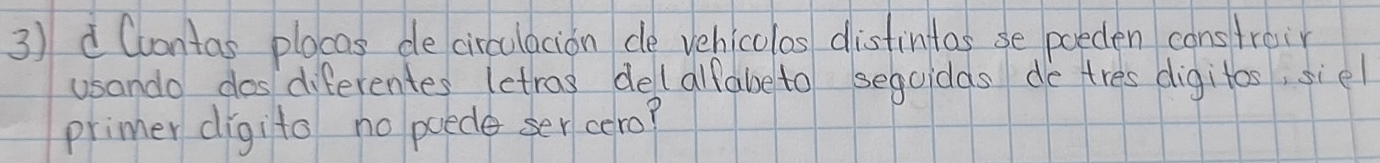 3) ¿ Cuantas placas de circulación de vehículos distintas se pueden construir
usando dos diferentes letras del alfabeto seguidas de tres digitos, si el
primer dígito no puede ser cero?